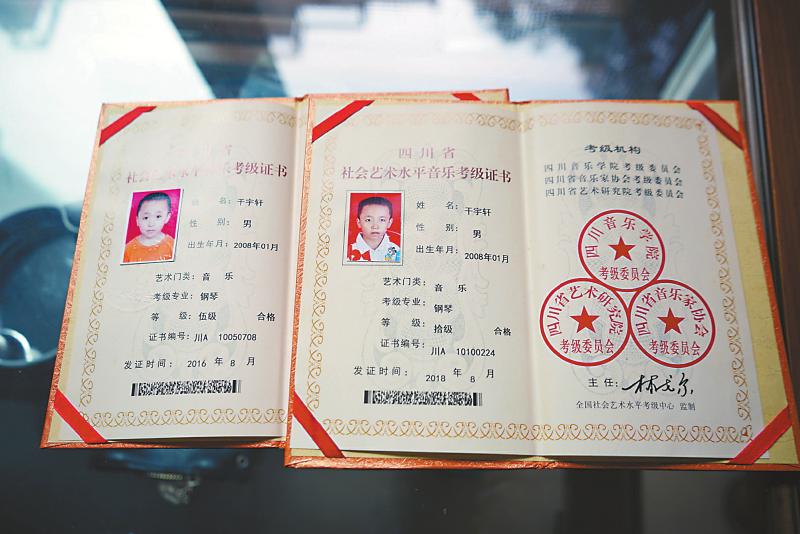 社会艺术水平音乐考级证书
姓 名: 干宇轩
性 别: 男
出生年月: 2008年01月
艺术门类: 音 乐
考级专业: 钢琴
等 级: 伍级 合格
证书编号: 川A 10050708
发证时间: 2016 年 8 月
四川省
社会艺术水平音乐考级证书
姓 名: 干宇轩
性 别: 男
出生年月: 2008年01月
艺术门类: 音 乐
考级专业: 钢琴
等 级: 拾级 合格
证书编号: 川A 10100224
发证时间: 2018 年 8 月
考级机构
四川音乐学院考级委员会
四川省音乐家协会考级委员会
四川省艺术研究院考级委员会
四川音乐学院
考级委员会
四川省艺术研究院
考级委员会
四川省音乐家协会
考级委员会
主任:
全国社会艺术水平考级中心 监制